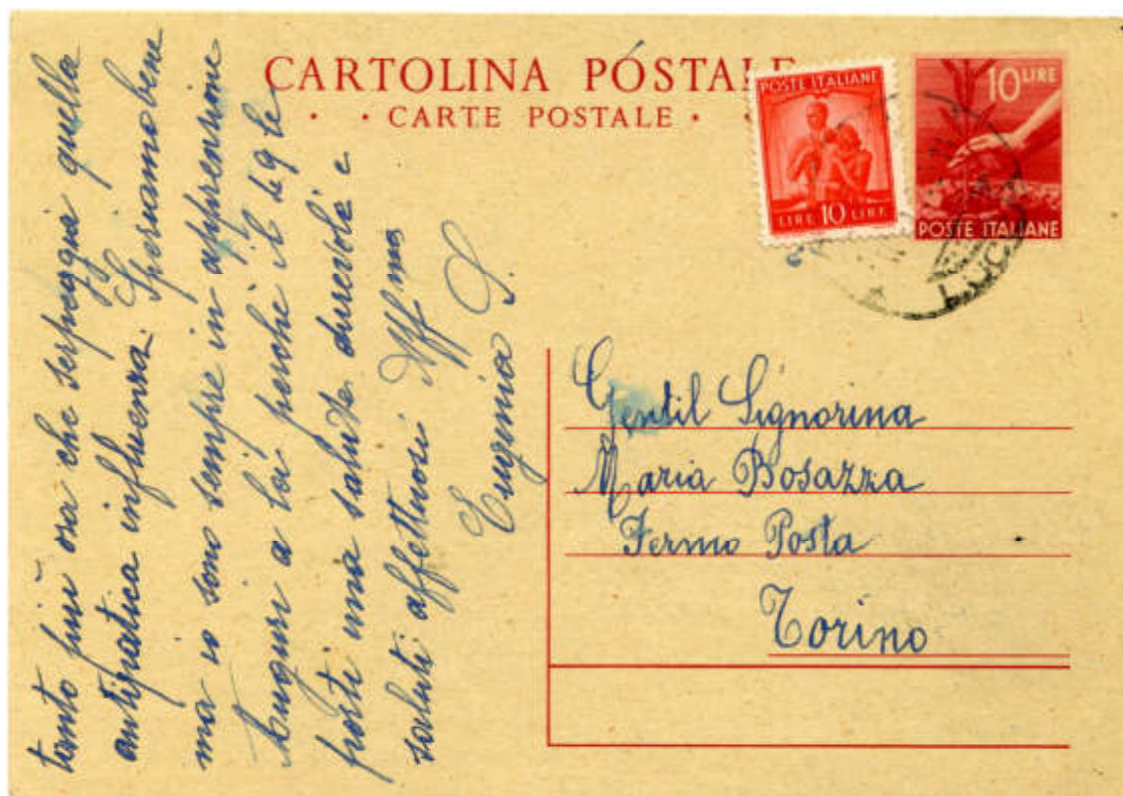 CARTOLINA POSTALE
· · CARTE POSTALE · ·
POSTE ITALIANE
LIRE 10 LIRE
10 LIRE
POSTE ITALIANE
tanto più ora che serpeggia quella
antipatica influenza. Speriamo bene
ma io sono sempre in apprensione
Auguri a Lei perché il 49 le
porti una salute durevole e
saluti affettuosi Aff mos
Eugenia S.
Gentil Signorina
Maria Bosazza
Fermo Posta
Torino